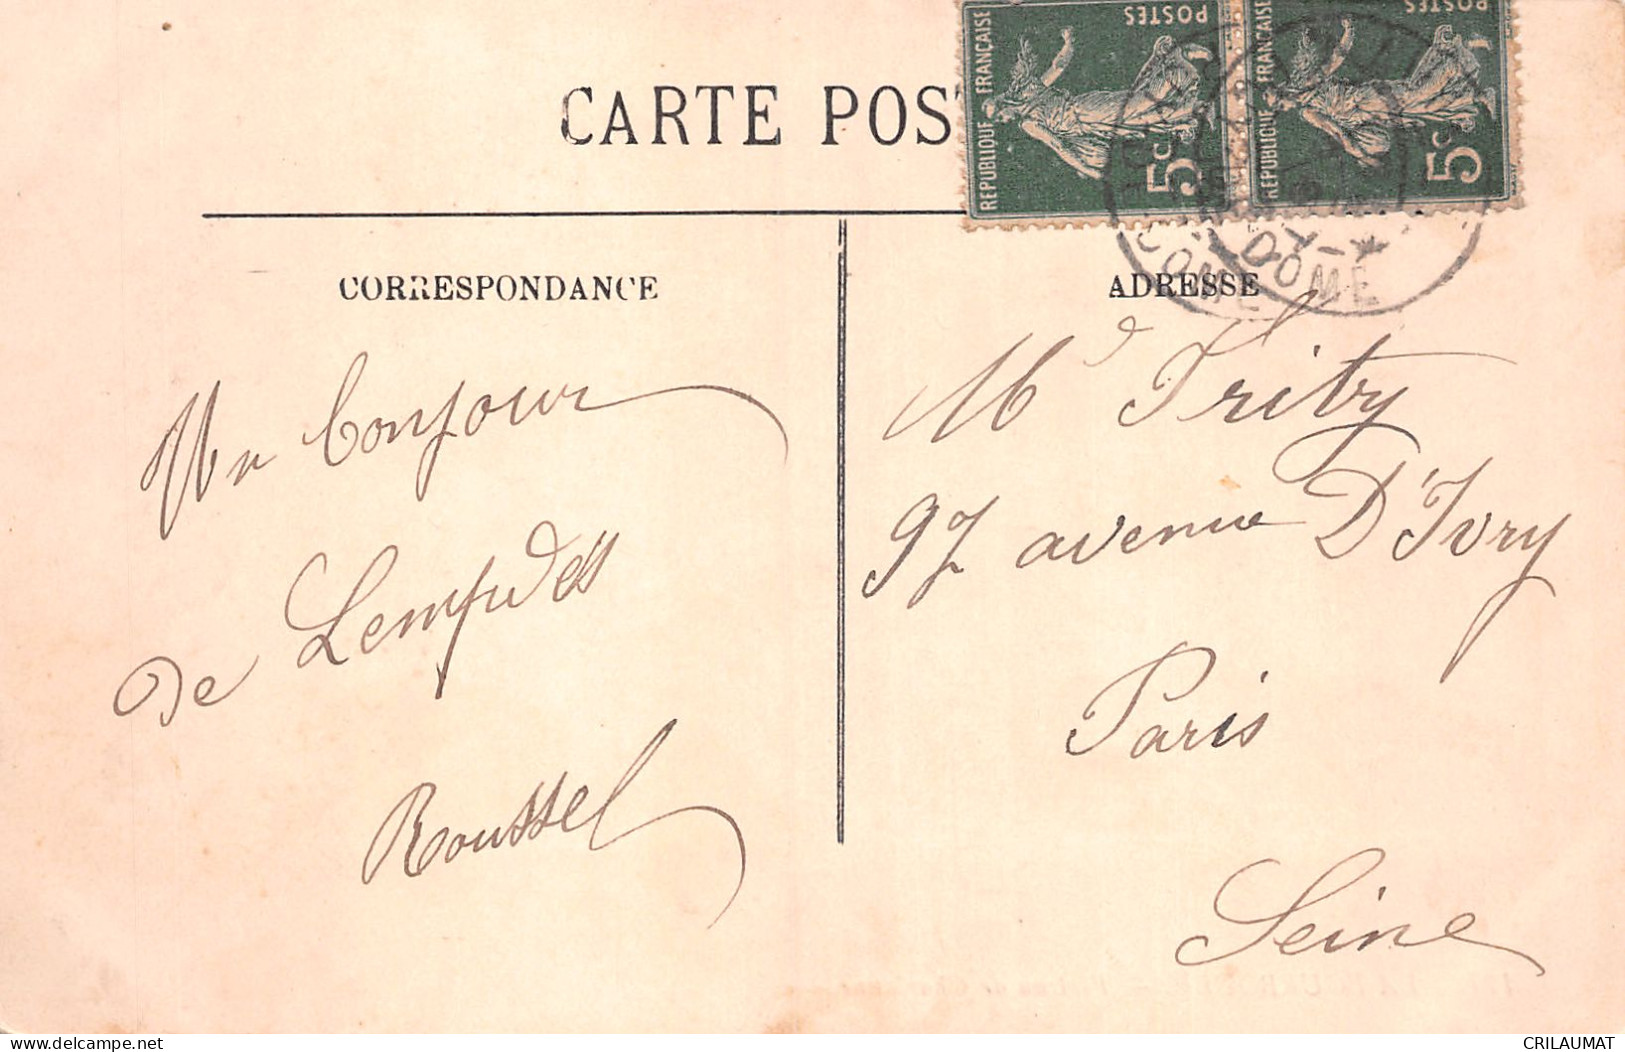 CARTE POS
POSTES
REPUBLIQUE FRANÇAISE
5c
POSTES
REPUBLIQUE FRANÇAISE
5c
DOME
DOME
CORRESPONDANCE
Un bonjour
de Lempdes
Roussel
ADRESSE
Md Fritz
97 avenue D'Ivry
Paris
Seine
www.delcampe.net
CRILAUMAT